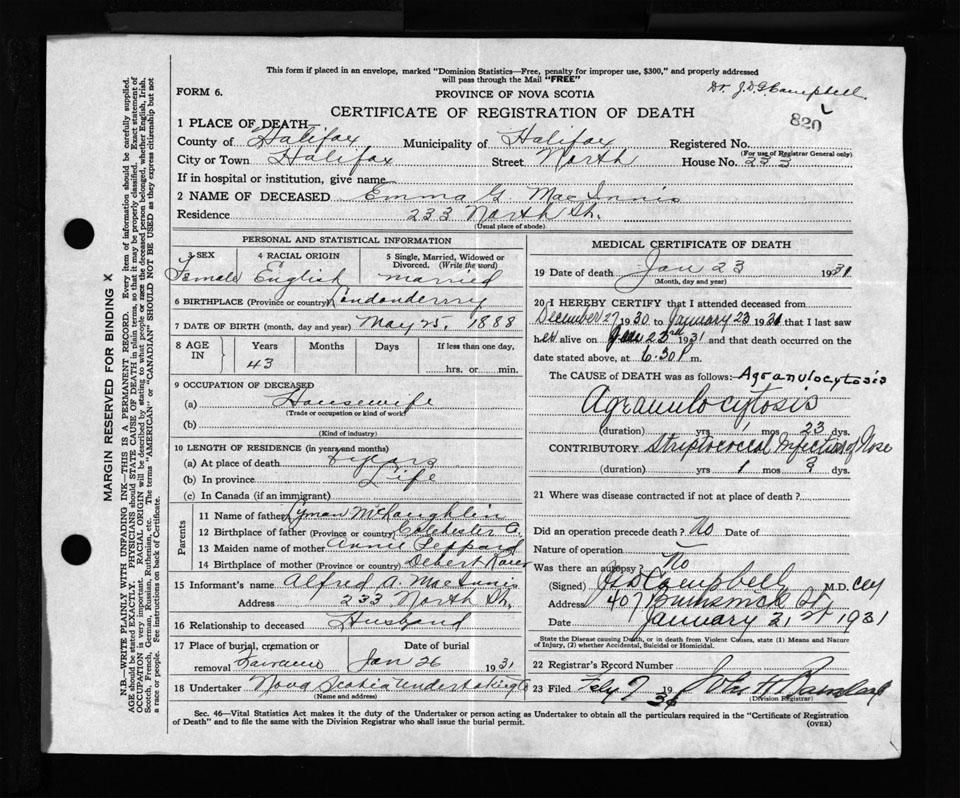 This form if placed in an envelope, marked "Dominion Statistics—Free, penalty for improper use, $300," and properly addressed
will pass through the Mail "FREE"
Dr. J.D.G. Campbell
FORM 6.
PROVINCE OF NOVA SCOTIA
820
CERTIFICATE OF REGISTRATION OF DEATH
1 PLACE OF DEATH—
County of Halifax Municipality of Halifax Registered No.
(For use of Registrar General only)
City or Town Halifax Street North House No. 233
If in hospital or institution, give name
2 NAME OF DECEASED Emma G. MacInnis
Residence 233 North St.
(Usual place of abode)
PERSONAL AND STATISTICAL INFORMATION
3 SEX
Female
4 RACIAL ORIGIN
English
5 Single, Married, Widowed or
Divorced. (Write the word)
married
6 BIRTHPLACE (Province or country) Londonderry
7 DATE OF BIRTH (month, day and year) May 25, 1888
8 AGE
IN
Years
43
Months
Days
If less than one day,
hrs. or min.
9 OCCUPATION OF DECEASED
(a) Housewife
(Trade or occupation or kind of work)
(b)
(Kind of industry)
10 LENGTH OF RESIDENCE (in years and months)
(a) At place of death years
(b) In province Life
(c) In Canada (if an immigrant)
Parents
11 Name of father Lyman McLaughlin
12 Birthplace of father (Province or country) Colchester Co.
13 Maiden name of mother Annie Peppard
14 Birthplace of mother (Province or country) Debert River
15 Informant's name Alfred A. MacInnis
Address 233 North St.
16 Relationship to deceased Husband
17 Place of burial, cremation or
removal Fairview
Date of burial
Jan 26 1931
18 Undertaker Nova Scotia Undertaking Co
(Name and address)
MEDICAL CERTIFICATE OF DEATH
19 Date of death Jan 23 1931
(Month, day and year)
20 I HEREBY CERTIFY that I attended deceased from
December 27 1930 to January 23 1931 that I last saw
her alive on Jan 23rd 1931 and that death occurred on the
date stated above, at 6.30 P. m.
The CAUSE OF DEATH was as follows: Agranulocytosis
Agranulocytosis
(duration) yrs 1 mos 23 dys.
CONTRIBUTORY Streptococcal Infection of Nose
(duration) yrs 1 mos dys.
21 Where was disease contracted if not at place of death?
Did an operation precede death? No Date of
Nature of operation
Was there an autopsy? No
(Signed) Campbell M.D.
Address 407 Brunswick St
Date January 31st 1931
State the Disease causing Death, or in death from Violent Causes, state (1) Means and Nature
of Injury, (2) whether Accidental, Suicidal or Homicidal.
22 Registrar's Record Number
23 Filed Feby 7 19
(Division Registrar)
Sec. 46—Vital Statistics Act makes it the duty of the Undertaker or person acting as Undertaker to obtain all the particulars required in the "Certificate of Registration
of Death" and to file the same with the Division Registrar who shall issue the burial permit.
(OVER)
MARGIN RESERVED FOR BINDING X
N.B.—WRITE PLAINLY WITH UNFADING INK—THIS IS A PERMANENT RECORD. Every item of information should be carefully supplied.
AGE should be stated EXACTLY. PHYSICIANS should STATE CAUSE OF DEATH in plain terms, so that it may be properly classified. Exact statement of
OCCUPATION is very important. RACIAL ORIGIN will be described by stating to what people or race the deceased person belonged, whether English, Irish,
Scotch, French, German, Russian, Ruthenian, etc. The terms "AMERICAN" or "CANADIAN" SHOULD NOT BE USED as they express citizenship but not
a race or people. See instructions on back of Certificate.